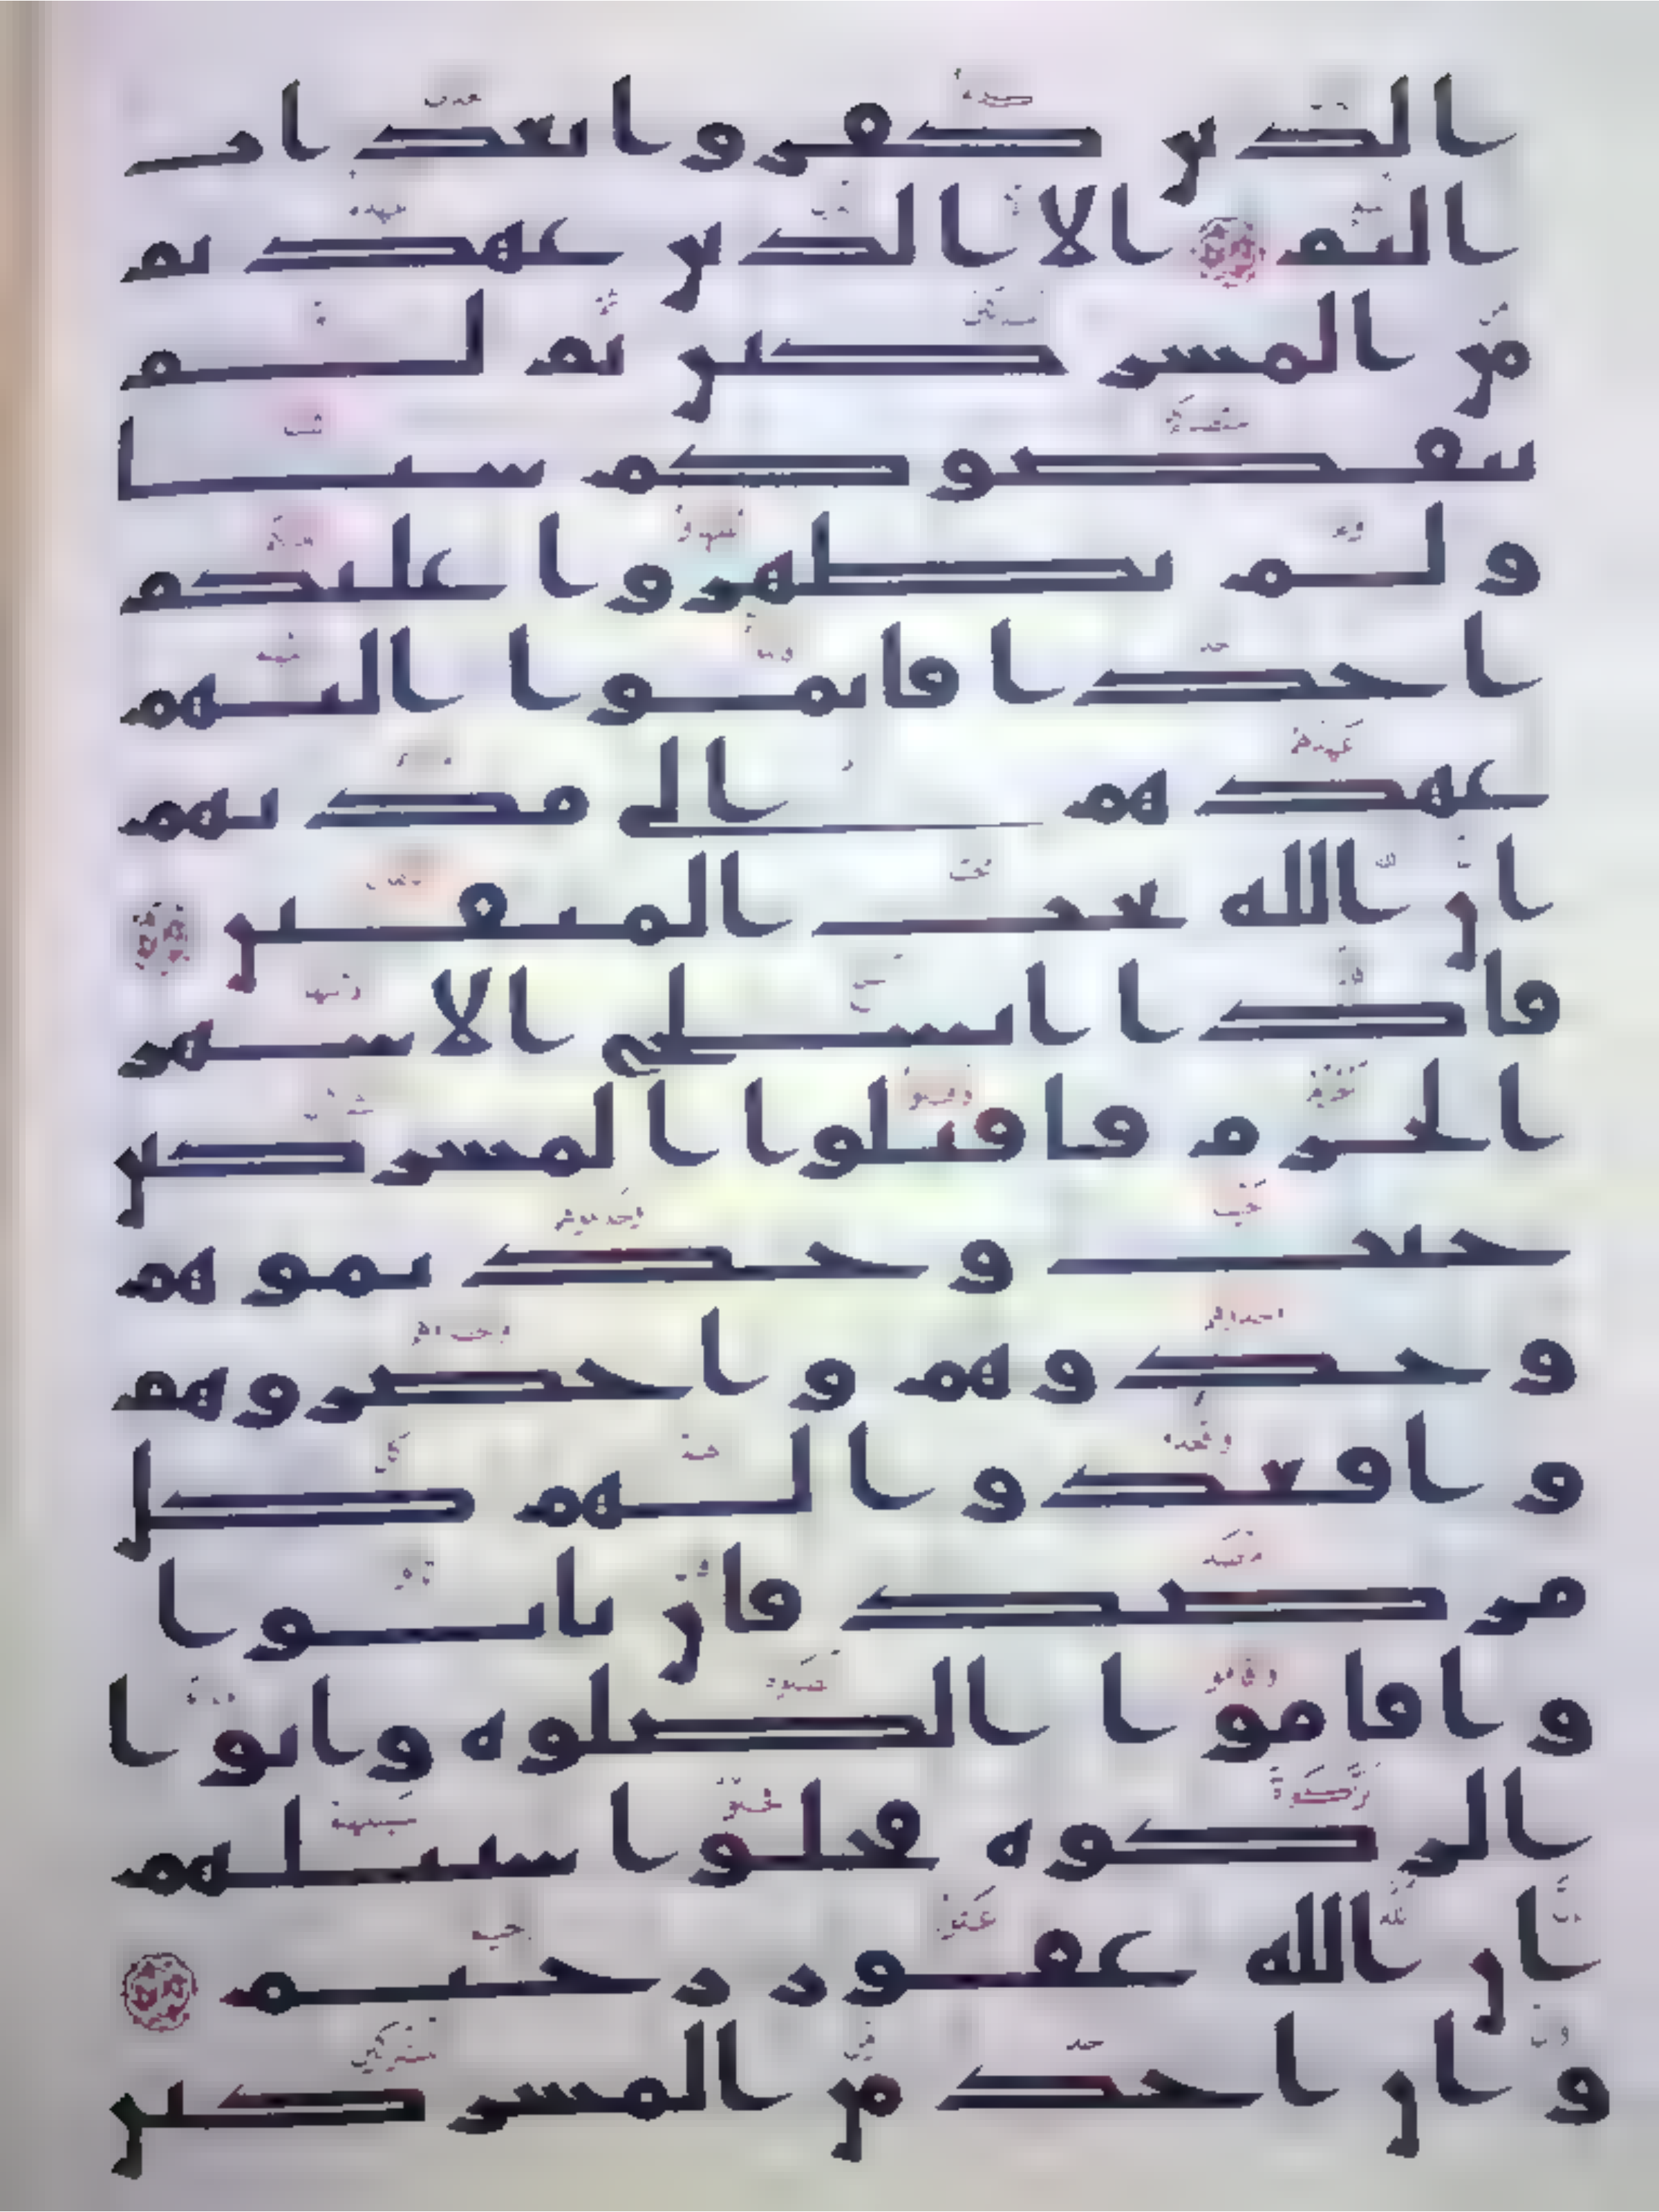 الذين كفروا بعذاب
اليم الا الذين عهدتم
من المشركين ثم لم
ينقصوكم شيا
ولم يظهروا عليكم
احدا فاتموا اليهم
عهدهم الى مدتهم
ان الله يحب المتقين
فاذا انسلخ الاشهر
الحرم فاقتلوا المشركين
حيث وجدتموهم
وخذوهم واحصروهم
واقعدوا لهم كل
مرصد فان تابوا
واقاموا الصلوه واتوا
الزكوه فخلوا سبيلهم
ان الله غفور رحيم
وان احد من المشركين